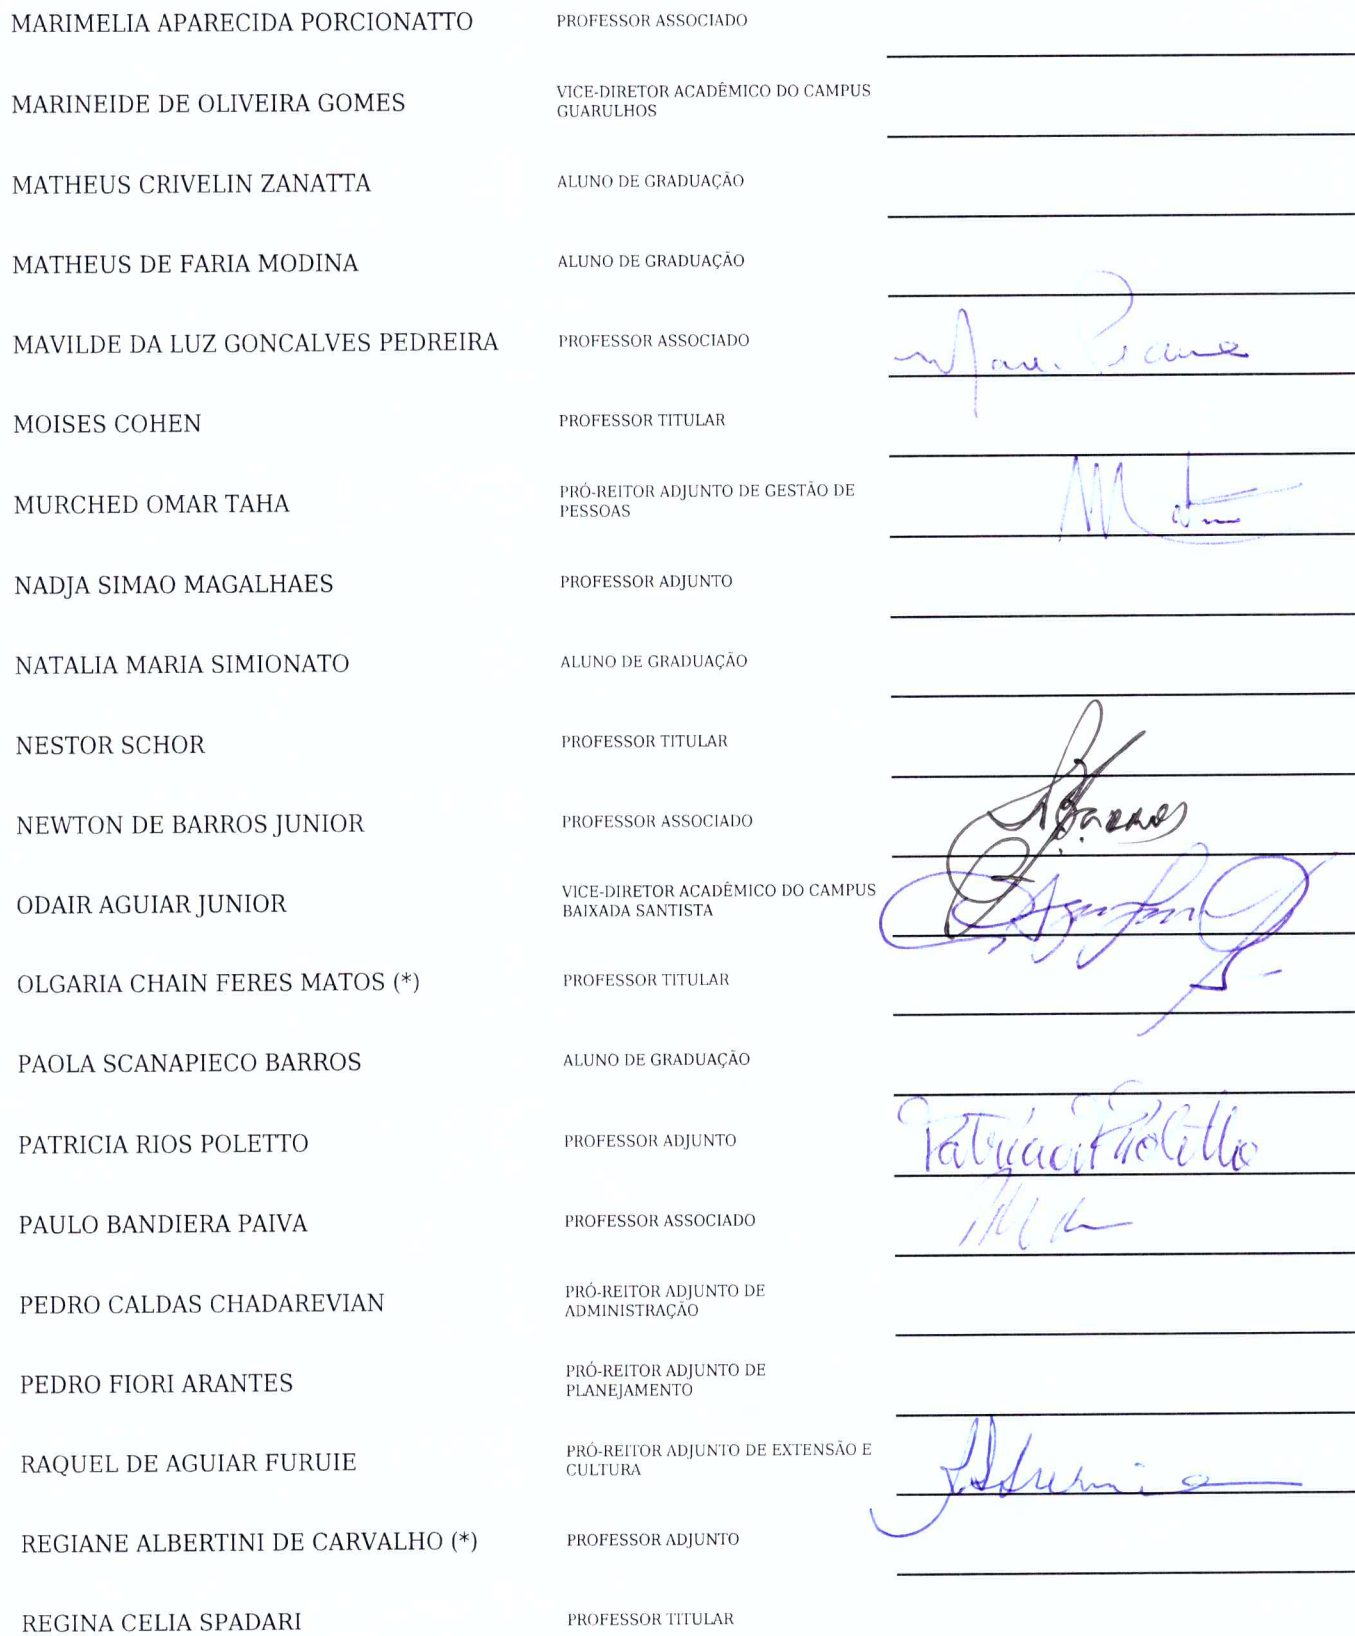 MARIMELIA APARECIDA PORCIONATTO PROFESSOR ASSOCIADO
MARINEIDE DE OLIVEIRA GOMES VICE-DIRETOR ACADÊMICO DO CAMPUS
GUARULHOS
MATHEUS CRIVELIN ZANATTA ALUNO DE GRADUAÇÃO
MATHEUS DE FARIA MODINA ALUNO DE GRADUAÇÃO
MAVILDE DA LUZ GONCALVES PEDREIRA PROFESSOR ASSOCIADO
MOISES COHEN PROFESSOR TITULAR
MURCHED OMAR TAHA PRÓ-REITOR ADJUNTO DE GESTÃO DE
PESSOAS
NADJA SIMAO MAGALHAES PROFESSOR ADJUNTO
NATALIA MARIA SIMIONATO ALUNO DE GRADUAÇÃO
NESTOR SCHOR PROFESSOR TITULAR
NEWTON DE BARROS JUNIOR PROFESSOR ASSOCIADO
ODAIR AGUIAR JUNIOR VICE-DIRETOR ACADÊMICO DO CAMPUS
BAIXADA SANTISTA
OLGARIA CHAIN FERES MATOS (*) PROFESSOR TITULAR
PAOLA SCANAPIECO BARROS ALUNO DE GRADUAÇÃO
PATRICIA RIOS POLETTO PROFESSOR ADJUNTO
PAULO BANDIERA PAIVA PROFESSOR ASSOCIADO
PEDRO CALDAS CHADAREVIAN PRÓ-REITOR ADJUNTO DE
ADMINISTRAÇÃO
PEDRO FIORI ARANTES PRÓ-REITOR ADJUNTO DE
PLANEJAMENTO
RAQUEL DE AGUIAR FURUIE PRÓ-REITOR ADJUNTO DE EXTENSÃO E
CULTURA
REGIANE ALBERTINI DE CARVALHO (*) PROFESSOR ADJUNTO
REGINA CELIA SPADARI PROFESSOR TITULAR